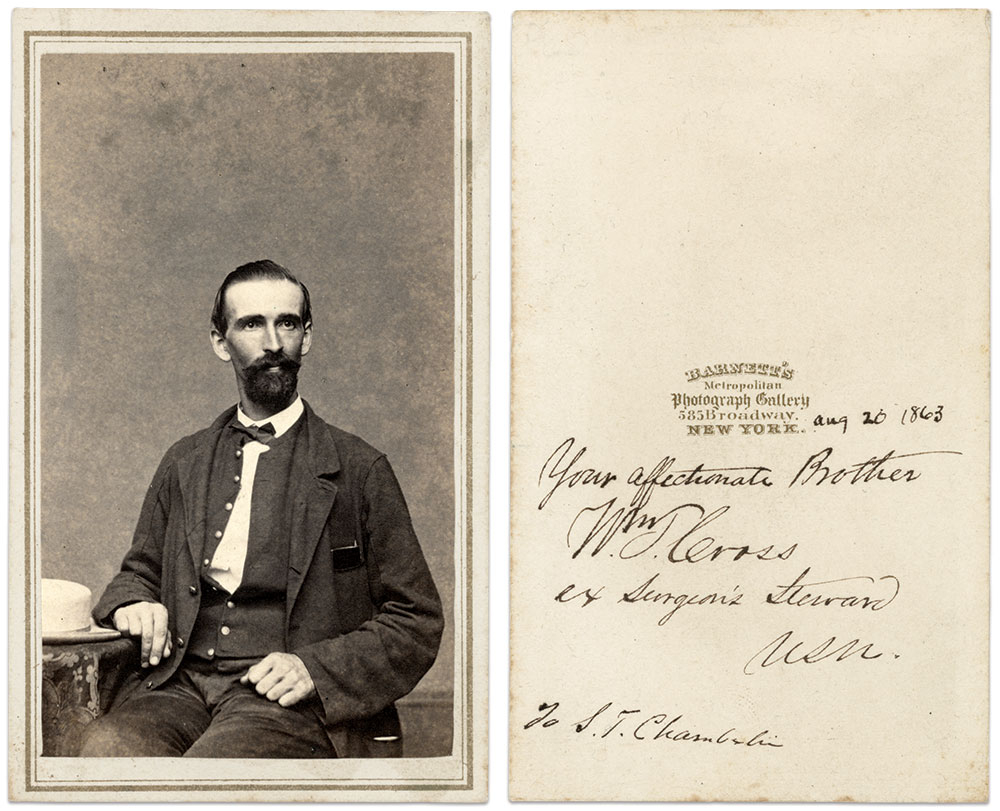 BARNETT'S
Metropolitan
Photograph Gallery
585 Broadway.
NEW YORK.
aug 20 1863
Your affectionate Brother
Wm. T. Cross
ex Surgeon's Steward
USN.
To S. T. Chamberlin